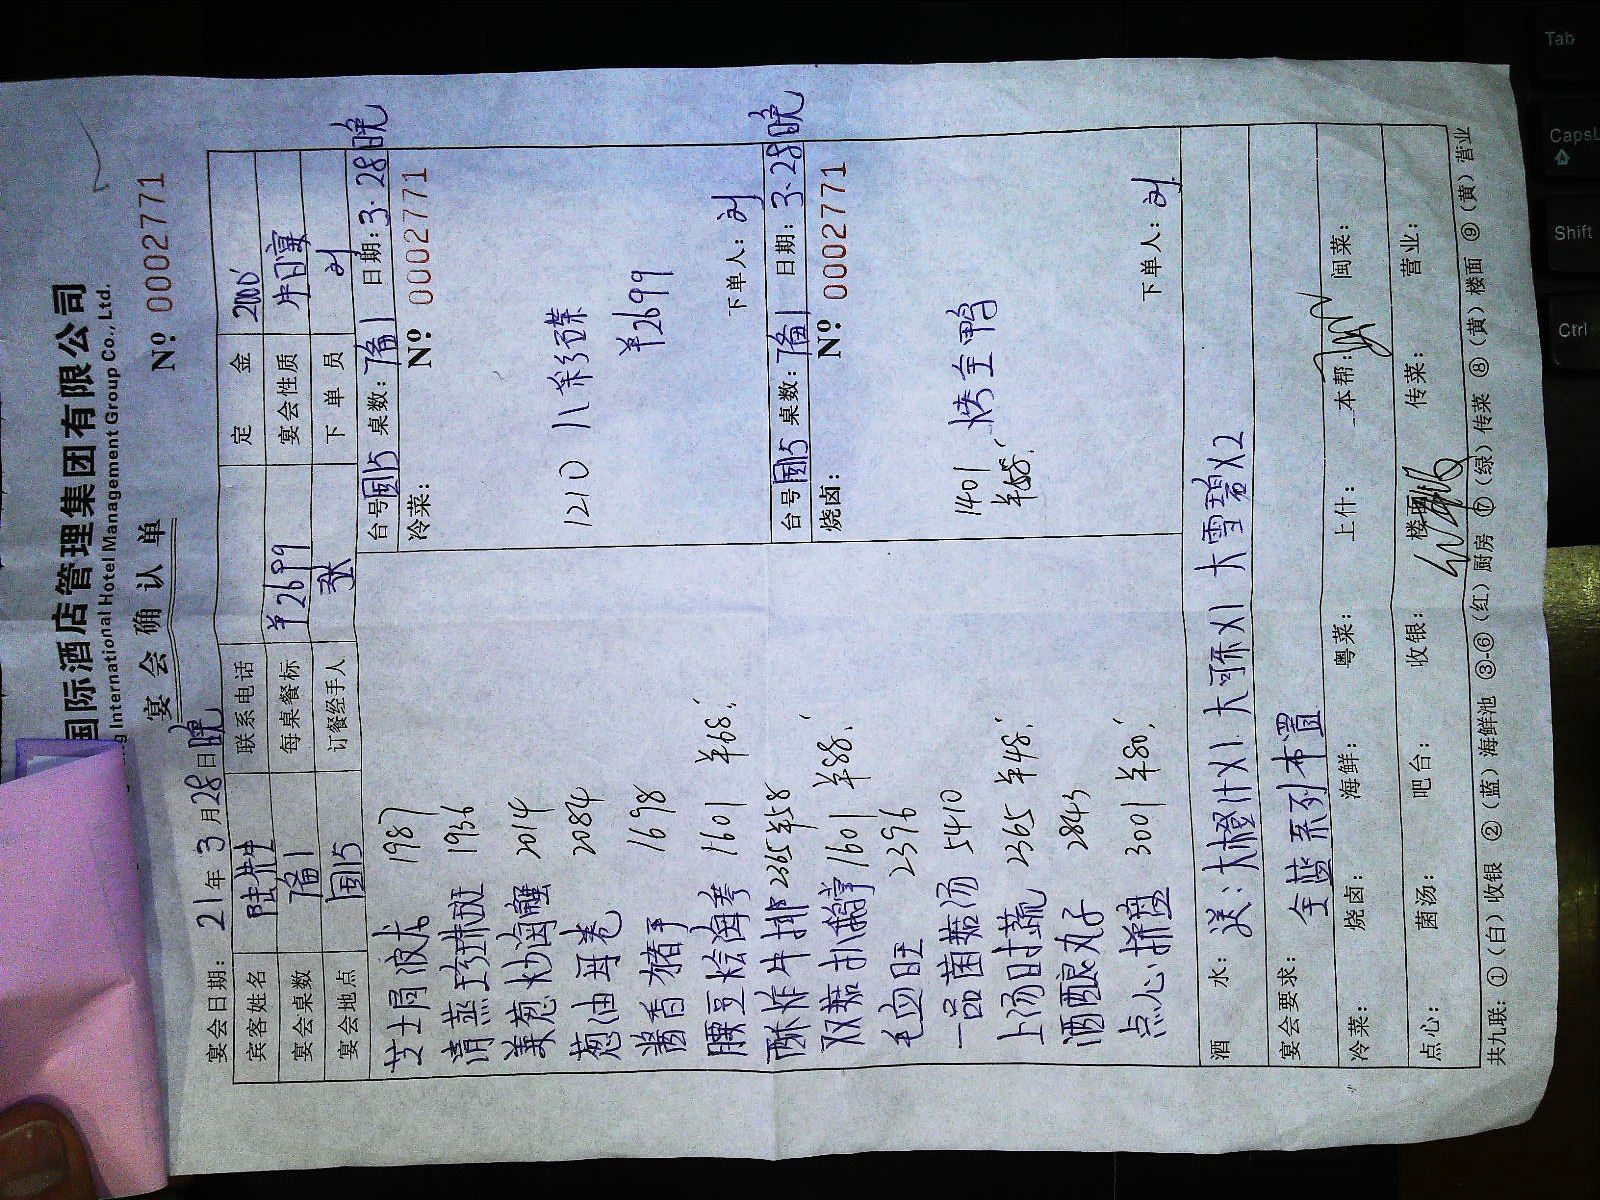 国际酒店管理集团有限公司
International Hotel Management Group Co., Ltd.
宴会确认单
Nº 0002771
宴会日期: 21年3月28日晚
宾客姓名 联系电话 定金 2000
宴会桌数 1 每桌餐标 ¥2699 宴会性质 生日宴
宴会地点 国15 订餐经手人 张 下单员 刘
芝士焗波龙 1987
清蒸珍珠斑 1936
姜葱炒海蟹 2014
葱油母卷 2084
酱香猪手 1698
腰豆烩海参 1601 ¥68
酥炸牛排 2365 ¥58
双菇扒 1601 ¥88
毛血旺 2396
一品菌菇汤 5410
上汤时蔬 2365 ¥48
酒酿丸子 2843
点心拼盘 3001 ¥80
台号 国15 桌数: 1 日期: 3·28晚
冷菜: Nº 0002771
1210 八彩碟
¥2699
下单人: 刘
台号 国15 桌数: 1 日期: 3·28晚
烧卤: Nº 0002771
1401 烤全鸭
¥88
下单人: 刘
酒水: 送: 大橙汁X1 大可乐X1 大雪碧X2
宴会要求: 全蓝系列布置
冷菜: 烧卤: 海鲜: 粤菜: 上什: 本帮: 闽菜:
点心: 菌汤: 吧台: 收银: 楼面: 传菜: 营业:
共九联: ①(白)收银 ②(蓝)海鲜池 ③-⑥(红)厨房 ⑦(绿)传菜 ⑧(黄)楼面 ⑨(黄)营业
Tab
CapsL
Shift
Ctrl